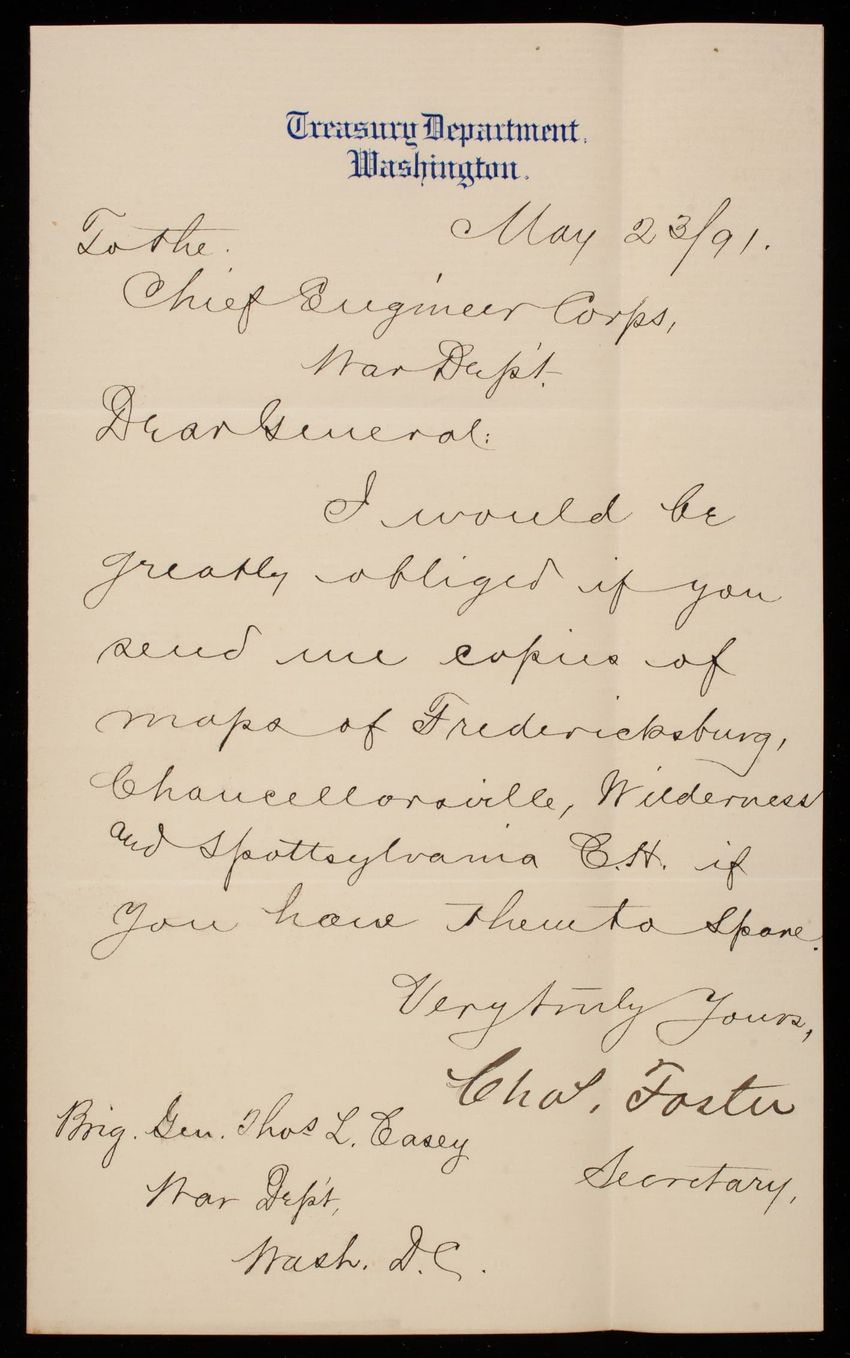 Treasury Department,
Washington.
May 23/91.
To the.
Chief Engineer Corps,
War Dep't.
Dear General:
I would be
greatly obliged if you
send me copies of
maps of Fredericksburg,
Chancellorsville, Wilderness
and Spottsylvania C.H. if
you have them to spare.
Very truly Yours,
Chas. Foster
Secretary,
Brig. Gen. Thos L. Casey
War Dep't,
Wash. D.C.